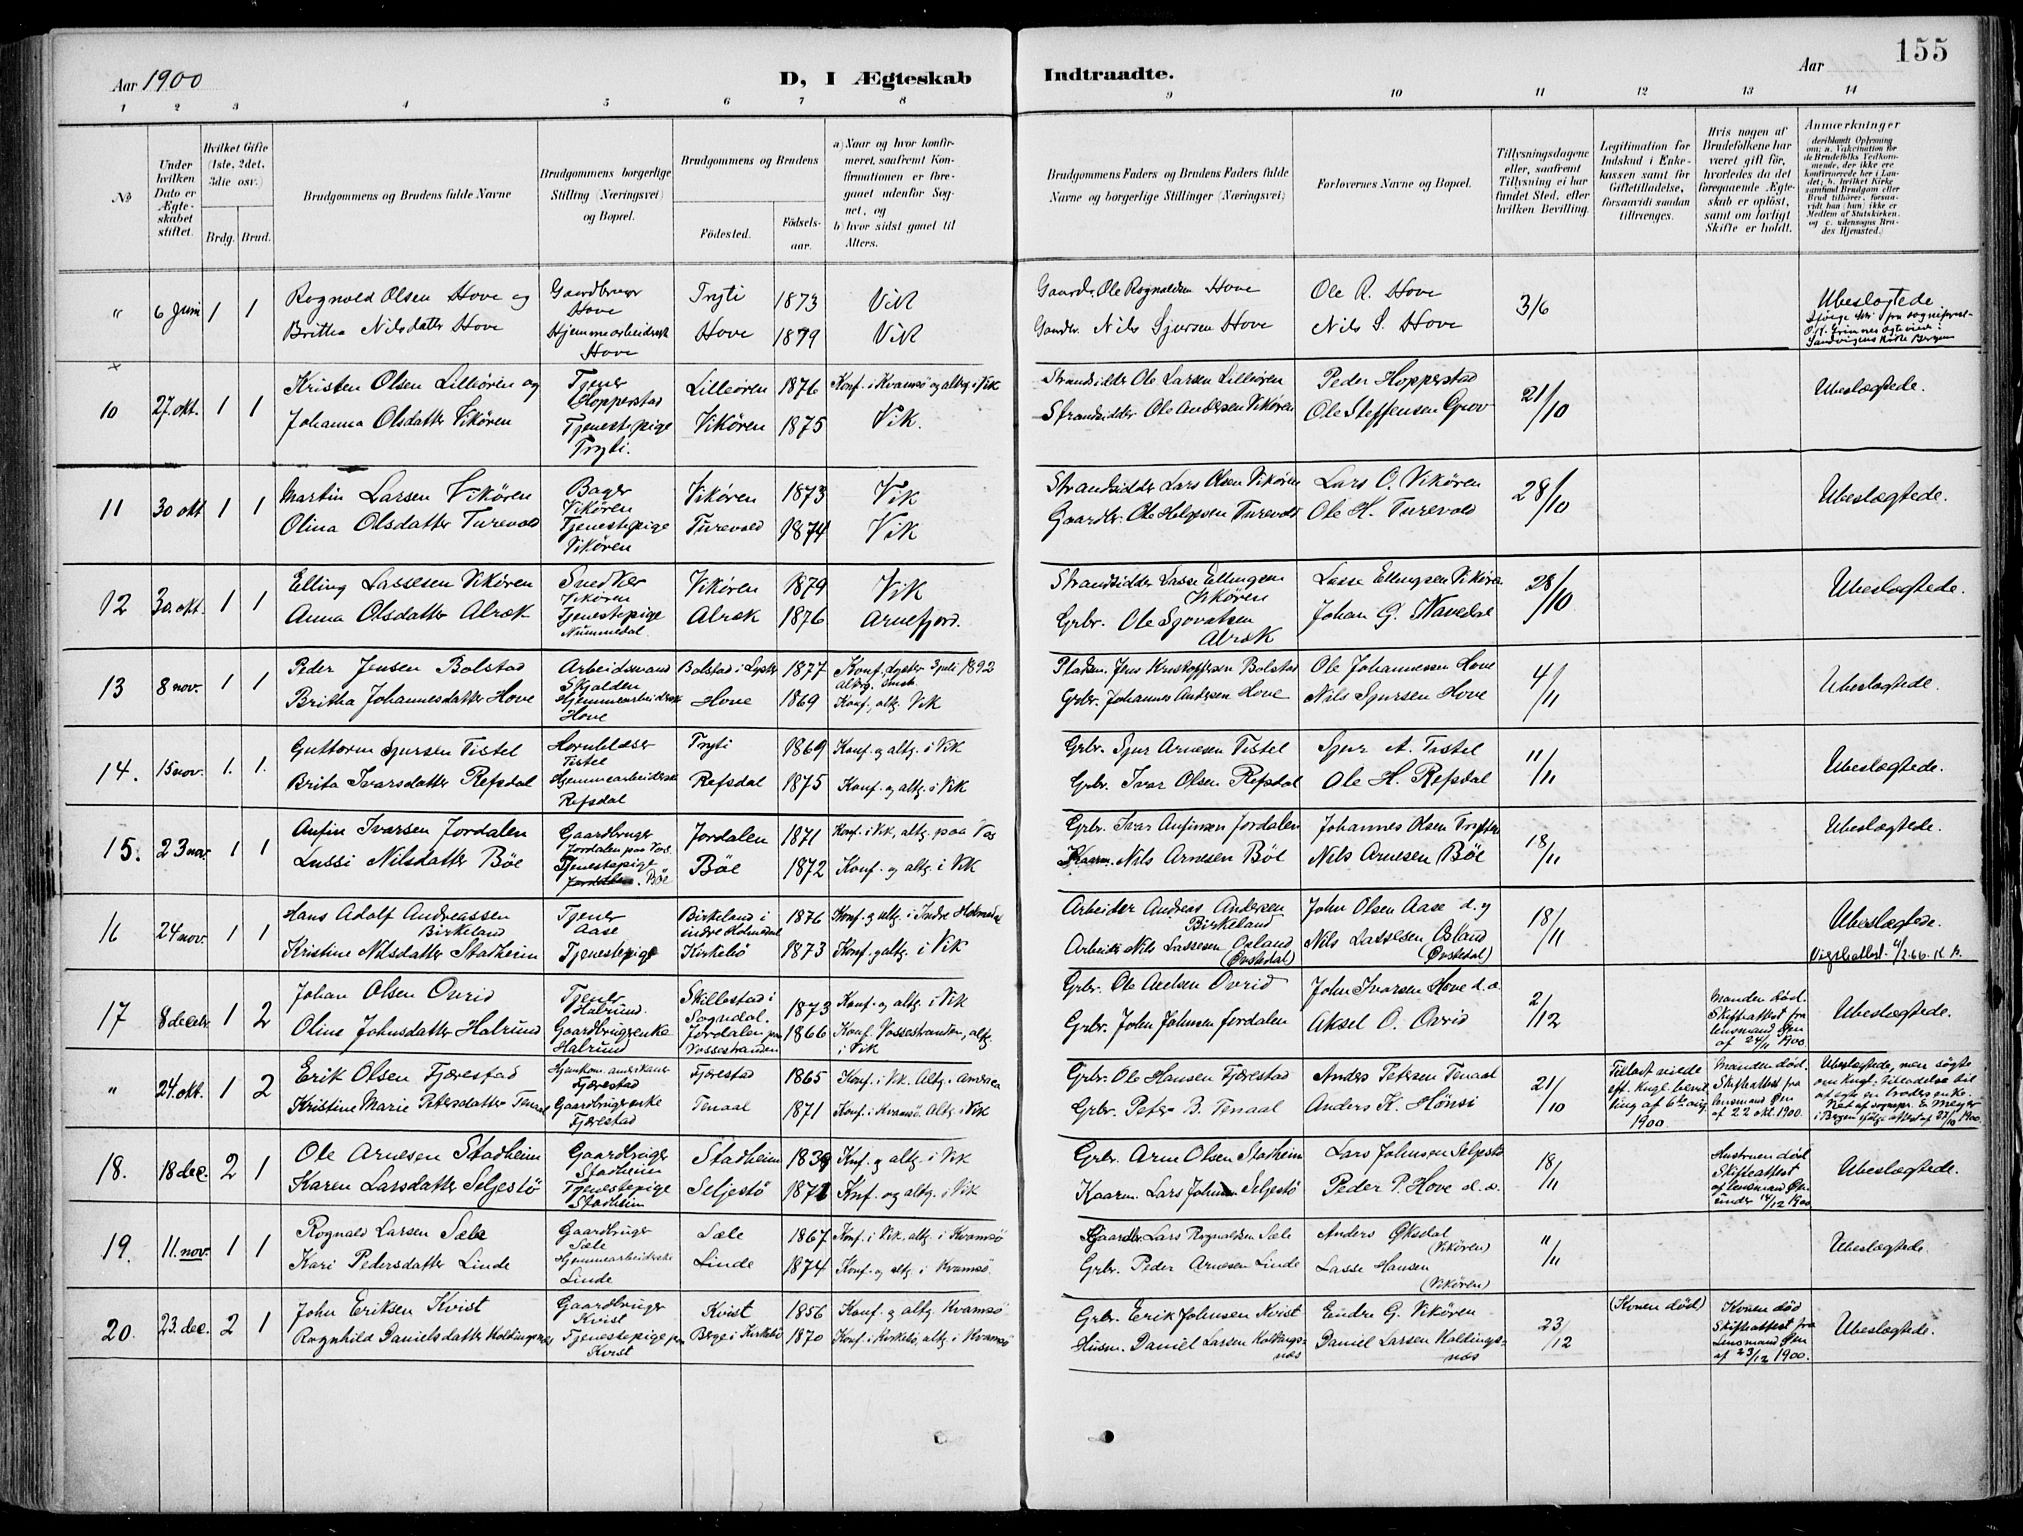 155
Aar 1900
D, I Ægteskab
Indtraadte.
Aar
1 2 3 4 5 6 7 8
9 10 11 12 13 14
№
Under hvilken Dato er Ægteskabet stiftet.
Hvilket Gifte (1ste, 2det, 3die osv.)
Brdg. Brud.
Brudgommens og Brudens fulde Navne
Brudgommens borgerlige Stilling (Næringsvei) og Bopæl.
Brudgommens og Brudens
Fødested.
Fødselsaar.
a) Naar og hvor konfirmeret, saafremt Konfirmationen er foregaaet udenfor Sognet, og
b) hvor sidst gaaet til Alters.
Brudgommens Faders og Brudens Faders fulde Navne og borgerlige Stillinger (Næringsvei)
Forlovernes Navne og Bopæl.
Tillysningsdagene eller, saafremt Tillysning ei har fundet Sted, efter hvilken Bevilling.
Legitimation for Indskud i Enkekassen samt for Giftetilladelse, forsaavidt saadan tiltrænges.
Hvis nogen af Brudefolkene har været gift før, hvorledes da det foregaaende Ægteskab er opløst, samt om lovligt Skifte er holdt.
Anmærkninger
(deriblandt Oplysning om: a. Vakcination for de Brudefolks Vedkommende, der ikke ere konfirmerede her i Landet; b. hvilket Kirkesamfund Brudgom eller Brud tilhører, forsaavidt han (hun) ikke er Medlem af Statskirken, og c. udensogns Brudes Hjemsted.)
" 6 Juni 1 1 Rognvald Olsen Hove og Gaardbruger Hove Tryti 1873 Vik Gaardr. Ole Rognaldsen Hove Ole R. Hove 3/6 Ubeslægtede
Britha Nilsdatter Hove Hjemmearbeidersk Hove Hove 1879 Vik Gaardbr. Nils Sjursen Hove Nils S. Hove
Sandvigens Kirke Bergen
10 27. okt. 1 1 Kristen Olsen Lilleören og Tjener Hopperstad Lilleören 1876 Konf. i Kvamsö og altg. i Vik Strandsidder Ole Larsen Lilleören Peder Hopperstad 21/10 Ubeslægtede.
Johanna Olsdatter Vikören Tjenestepige Tryti. Vikören 1875 Vik. Strandsidder Ole Andersen Vikören Ole Steffensen Grov
11 30 okt 1 1 Martin Larsen Vikören Bager Vikören Vikören 1873 Vik Strandsidder Lars Olsen Vikören Lars O. Vikören 28/10 Ubeslægtede.
Olina Olsdatter Turevold Tjenestepige Vikören Turevold 1874 Vik Gaardbr. Ole Helgesen Turevold Ole H. Turevold
12 30. okt. 1 1 Elling Lassesen Vikören Snedker Vikören Vikören 1879 Vik Strandsidder Lasse Ellingsen Vikören Lasse Ellingsen Vikören 28/10 Ubeslægtede.
Anna Olsdatter Alræk Tjenestepige Nummedal Alræk 1876 Arnefjord. Grbr. Ole Sjovatsen Alræk Johan G. Navedal
13 8 nov. 1 1 Peder Jensen Bolstad Arbeidsmand Skjolden Bolstad i Lyster 1877 Konf. Lyster 3 juli 1892 Pladsm. Jens Kristoffersen Bolstad Ole Johannesen Hove 4/11 Ubeslægtede.
Britha Johannesdatter Hove Hjemmearbeidersk Hove Hove 1869 Konf., altg. Vik Grbr. Johannes Andersen Hove Nils Sjursen Hove
14. 15 nov. 1. 1. Guttorm Sjursen Tistel Hornblæser Tistel Tryti 1869 Konf. og altg. i Vik Grbr. Sjur Arnesen Tistel Sjur A. Tistel 11/11 Ubeslægtede.
Brita Ivarsdatter Refsdal Hjemmearbeiderske Refsdal Refsdal 1875 Konf. og altg. i Vik Grbr. Ivar Olsen Refsdal Ole H. Refsdal
15. 23 nov. 1 1 Anfin Ivarsen Jordalen Gaardbruger Jordalen paa Vos Jordalen 1871 Konf. i Vik, altg. paa Vos Grbr. Ivar Anfinsen Jordalen Johannes Olsen 18/11 Ubeslægtede.
Lussi Nilsdatter Böe Tjenestepige Böe Böe 1872 Konf. og altg. i Vik Kaarm. Nils Arnesen Böe Nils Arnesen Böe
16 24 nov. 1 1 Hans Adolf Andreassen Birkeland Tjener Aase Birkeland i indre Holmedal 1876 Konf. og altg. i Indre Holmedal Arbeider Andreas Andersen Birkeland John Olsen Aase d.y 18/11 Ubeslægtede.
Kristine Nilsdatter Stadheim Tjenestepige Kirkebö 1873 Konf. og altg. i Vik Arbeider Nils Lassesen Osland (Övstedal) Nils Lassesen Osland (Övstedal) Vigselattest 4/2.66. K.B.
17 8 decbr. 1 2 Johan Olsen Ovrid Tjener Halrund. Skillestad i Sogndal. 1873 Konf. og altg. i Vik Grbr. Ole Axelsen Ovrid John Ivarsen Hove d.æ 2/12 Manden död. Skifteattest fra lensmand Øen af 24/11 1900 Ubeslægtede.
Olina Johnsdatter Halrund Gaardbrugerenke Halrund Jordalen paa Vossestranden 1866 Konf. Vossestranden, altg. i Vik Grbr. John Johnsen Jordalen Aksel O. Ovrid
" 24. okt. 1 2 Erik Olsen Fjærestad Hjemkom. amerikaner Fjærestad Fjærestad 1865 Konf. i Vik. Altg. i Amerika Grbr. Ole Hansen Fjærestad Anders Petersen Tenaal 21/10 Tillyst viede eft. kngl. bevilling af 6te aug. 1900. Manden död. Skifteattest fra lensmand Øen af 22 okt. 1900. Ubeslægtede, men sögte om Kngl. Tilladelse til at egte en broders enke.
Kristine Marie Petersdatter Tenaal Gaardbrugerenke Fjærestad Tenaal 1871 Konf. i Kvamsö. Altg. i Vik Grbr. Peter B. Tenaal Anders K. Hönsi
18. 18 dec. 2 1 Ole Arnesen Stadheim Gaardbruger Stadheim Stadheim 1839 Konf. og altg. i Vik Grbr. Arne Olsen Stadheim Lars Johnsen Seljestö 18/11 Hustruen död Skifteattest af lensmand Øen under 14/12 1900 Ubeslægtede.
Karen Larsdatter Seljestö Tjenestepige Stadheim Seljestö 1872 Konf. og altg. i Vik Kaarm. Lars Johnsen Seljestö Peder P. Hove d.æ.
19. 11. nov. 1 1 Rognald Larsen Sæle Gaardbruger Sæle Sæle 1867 Konf. i Vik, altg. i Kvamsö Gaardbr Lars Rognaldsen Sæle Anders Øksdal (Vikören) 11/11 Ubeslægtede.
Kari Pedersdatter Linde Hjemmearbeiderske Linde Linde 1874 Konf. og altg. i Kvamsö. Grbr. Peder Arnesen Linde Lasse Hansen (Vikören)
20. 23. dec. 2 1 John Eriksen Kvist Gaardbruger Kvist Kvist 1856 Konf. og altg. Kvamsö Grbr. Erik Johnsen Kvist Endre G. Vikören 23/12 (Konen död) Konen död Skifteattest fra Lensmand Øen af 23/12 1900. Ubeslægtede.
Rognhild Danielsdatter Koldingsnæs Tjenestepige paa Kvist Berge i Kirkebö 1870 Konf. i Kirkebö, altg. i Kvamsö Husm. Daniel Larsen Koldingsnæs Daniel Larsen Koldingsnæs